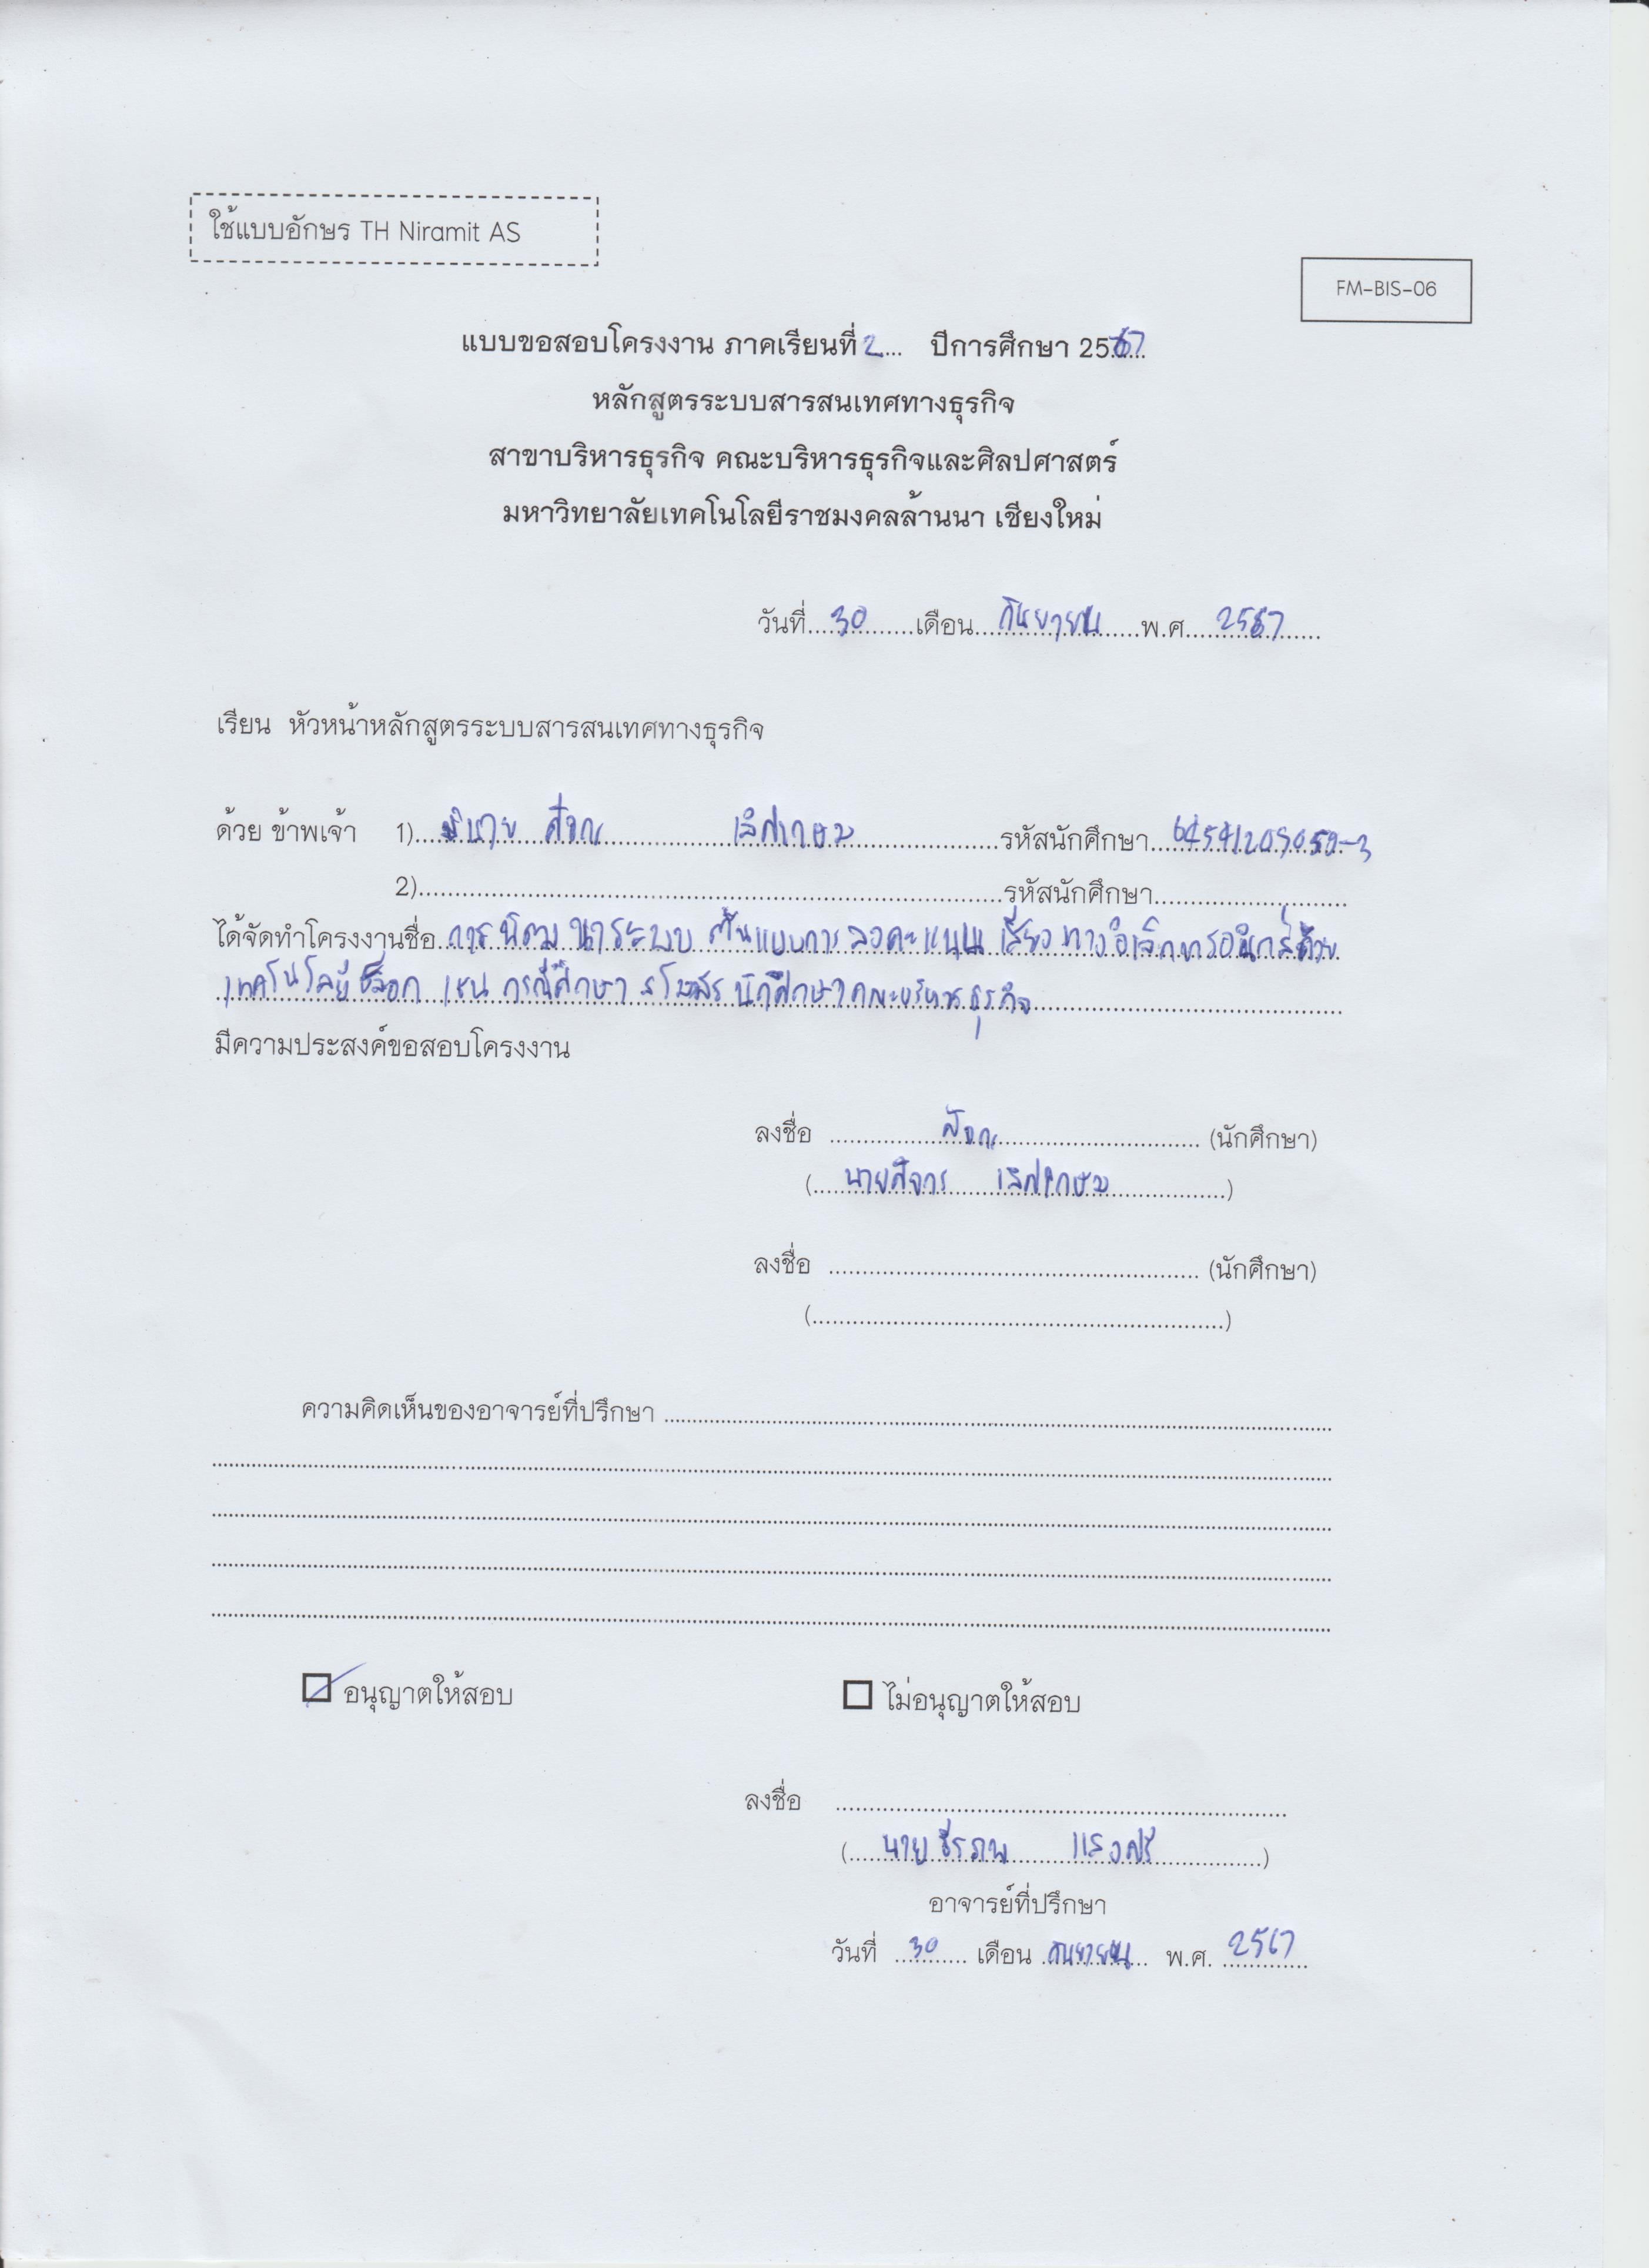 ใช้แบบอักษร TH Niramit AS
FM-BIS-06
แบบขอสอบโครงงาน ภาคเรียนที่ 2... ปีการศึกษา 2567
หลักสูตรระบบสารสนเทศทางธุรกิจ
สาขาบริหารธุรกิจ คณะบริหารธุรกิจและศิลปศาสตร์
มหาวิทยาลัยเทคโนโลยีราชมงคลล้านนา เชียงใหม่
วันที่....30....เดือน....กันยายน....พ.ศ....2567....
เรียน หัวหน้าหลักสูตรระบบสารสนเทศทางธุรกิจ
ด้วย ข้าพเจ้า 1)....นาย........รหัสนักศึกษา....
2)........รหัสนักศึกษา........
ได้จัดทำโครงงานชื่อ การ ระบบ ต้นแบบการ ลงคะแนน เสียง ทางอิเล็กทรอนิกส์ด้วย
เทคโนโลยี บล็อก เชน กรณีศึกษา สโมสร นักศึกษาคณะบริหารธุรกิจ
มีความประสงค์ขอสอบโครงงาน
ลงชื่อ ........ (นักศึกษา)
(....นาย........)
ลงชื่อ ........ (นักศึกษา)
(........)
ความคิดเห็นของอาจารย์ที่ปรึกษา ........
อนุญาตให้สอบ ไม่อนุญาตให้สอบ
ลงชื่อ ........
(....นาย ธีรภพ แสงศรี....)
อาจารย์ที่ปรึกษา
วันที่ ..30.. เดือน กันยายน พ.ศ. 2567